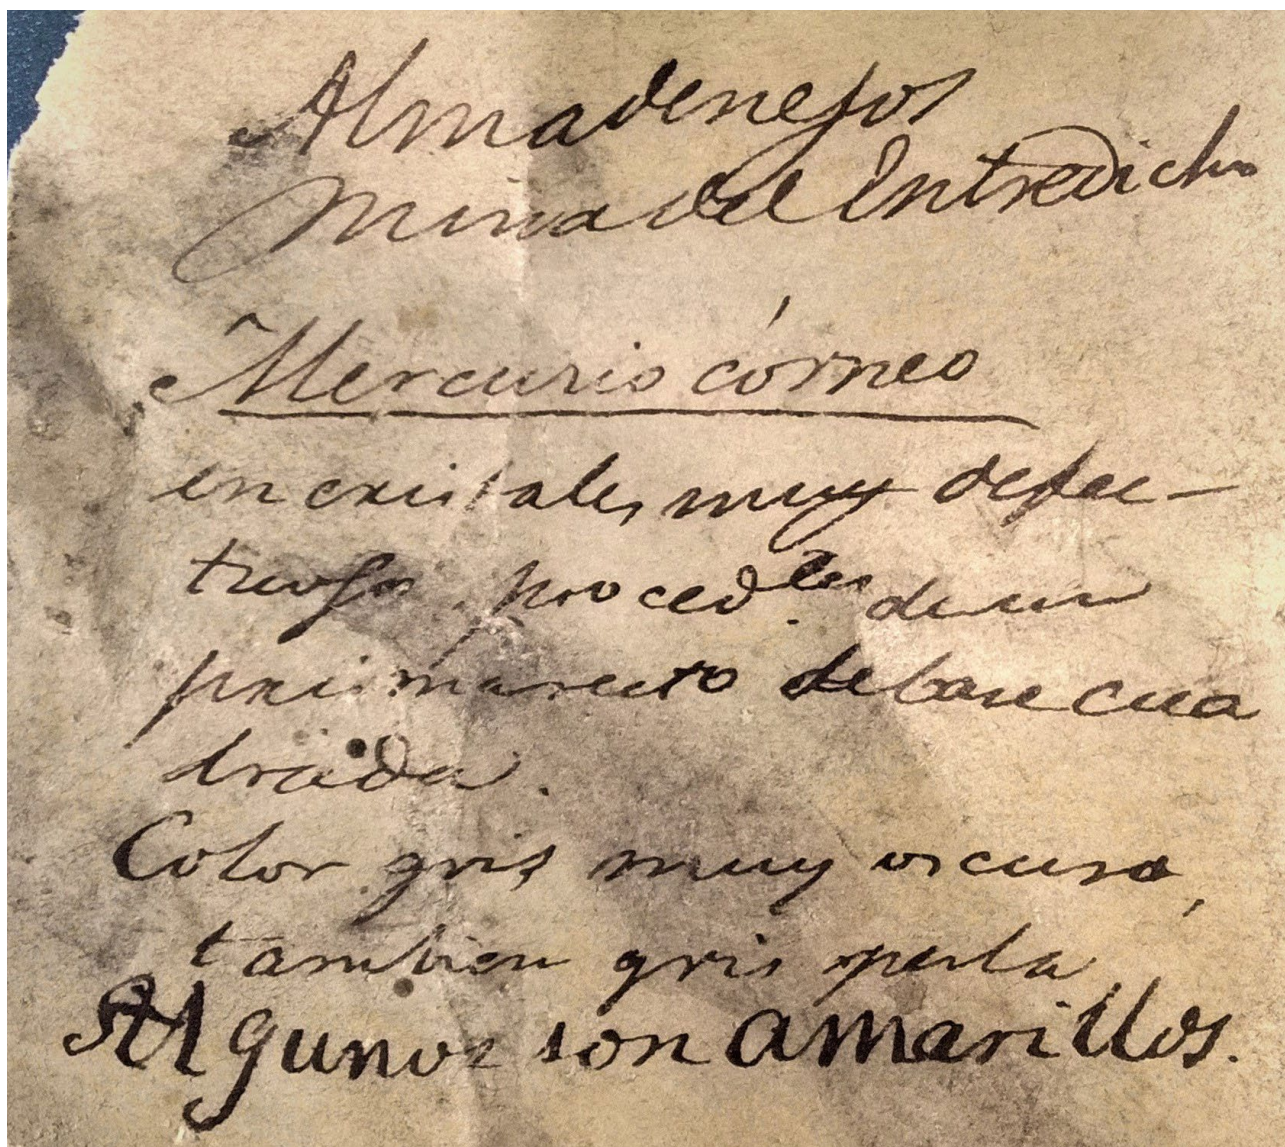 Almadenejos
Mina del Entredicho
Mercurio córneo
en cristales muy defec-
tuosos proced.tes de un
prisma recto de base cua
drada.
Color gris muy oscuro,
tambien gris perla
Algunos son amarillos.